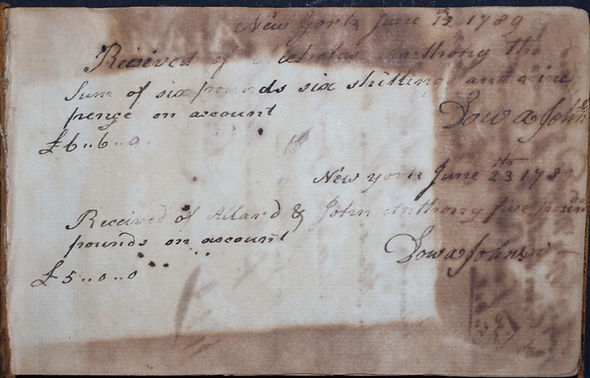 New York June 12 1789
Received of Nicholas Anthony the
Sum of six pounds six shillings and nine
pence on account
£6..6..9
New York June 23th 1789
Received of Allard & John Anthony five pounds
pounds on account
£5..0..0